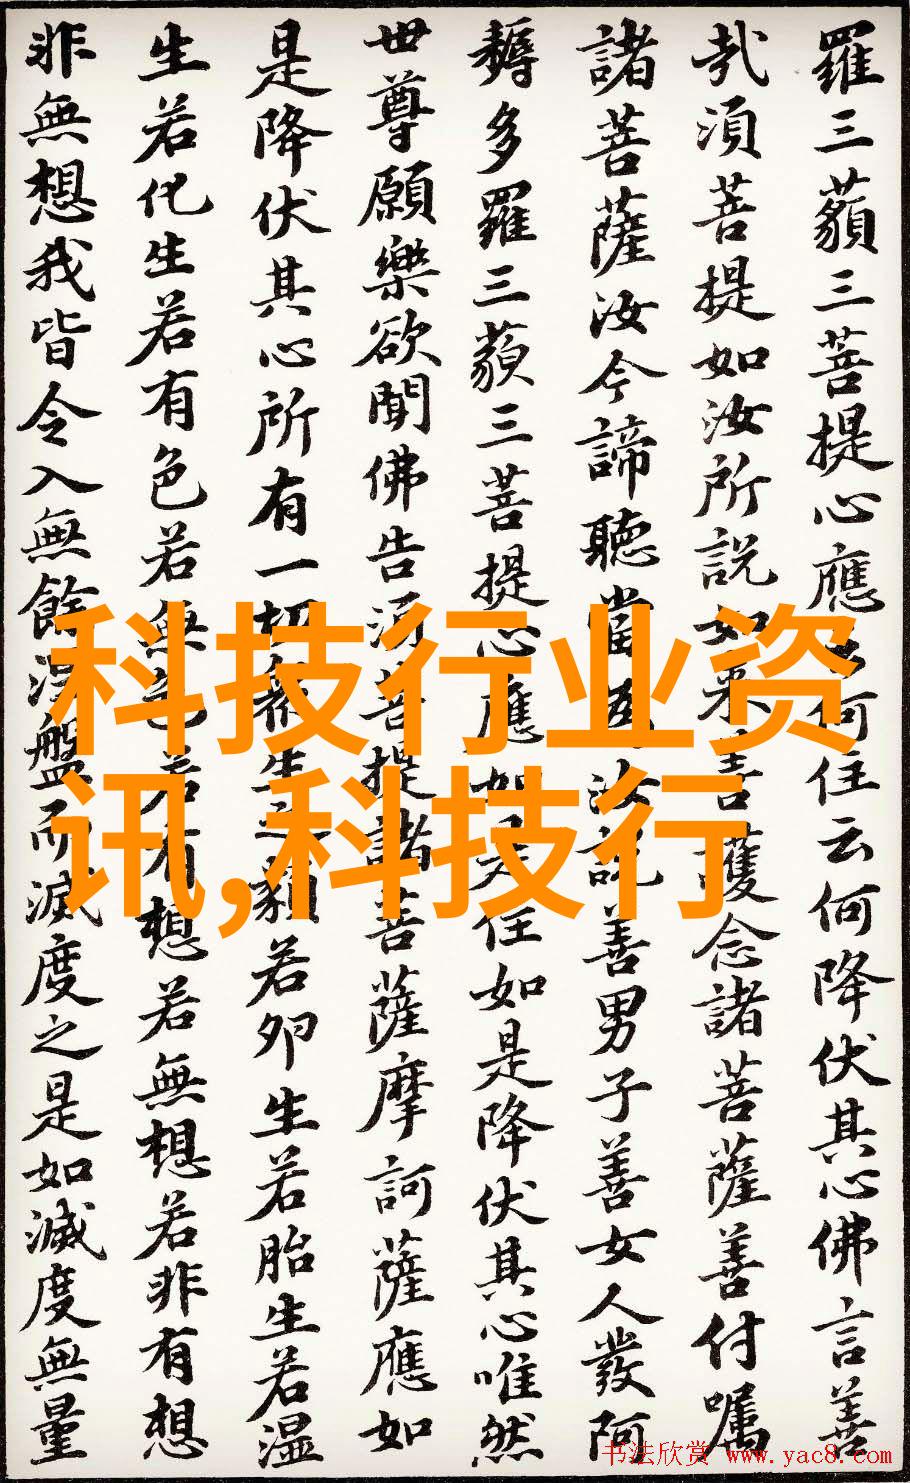 羅三藐三菩提心應云何住云何降伏其心佛言善
哉須菩提如汝所說如来善護念諸菩薩善付嘱
諸菩薩汝今諦聽當為汝說善男子善女人發阿
耨多羅三藐三菩提心應如是住如是降伏其心唯然
世尊願樂欲聞佛告須菩提諸菩薩摩訶薩應如
是降伏其心所有一切衆生之類若卵生若胎生若湿
生若化生若有色若無色若有想若無想若非有想
非無想我皆令入無餘涅盤而滅度之是如滅度無量
科技行业资
讯,科技行
书法欣赏 www.yac8.com